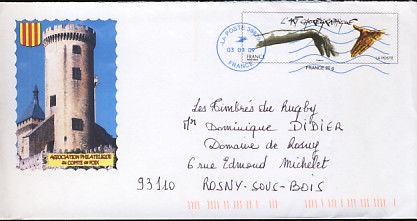 L'Art Chorégraphique
LA POSTE
03 03 09
FRANCE
FRANCE
LA POSTE
FRANCE 20 g
Les Timbrés du Rugby
Mr Dominique DIDIER
Domaine de Rosny
6 rue Edmond Michelet
93110 ROSNY-SOUS-BOIS
ASSOCIATION PHILATELIQUE
du COMTE de FOIX